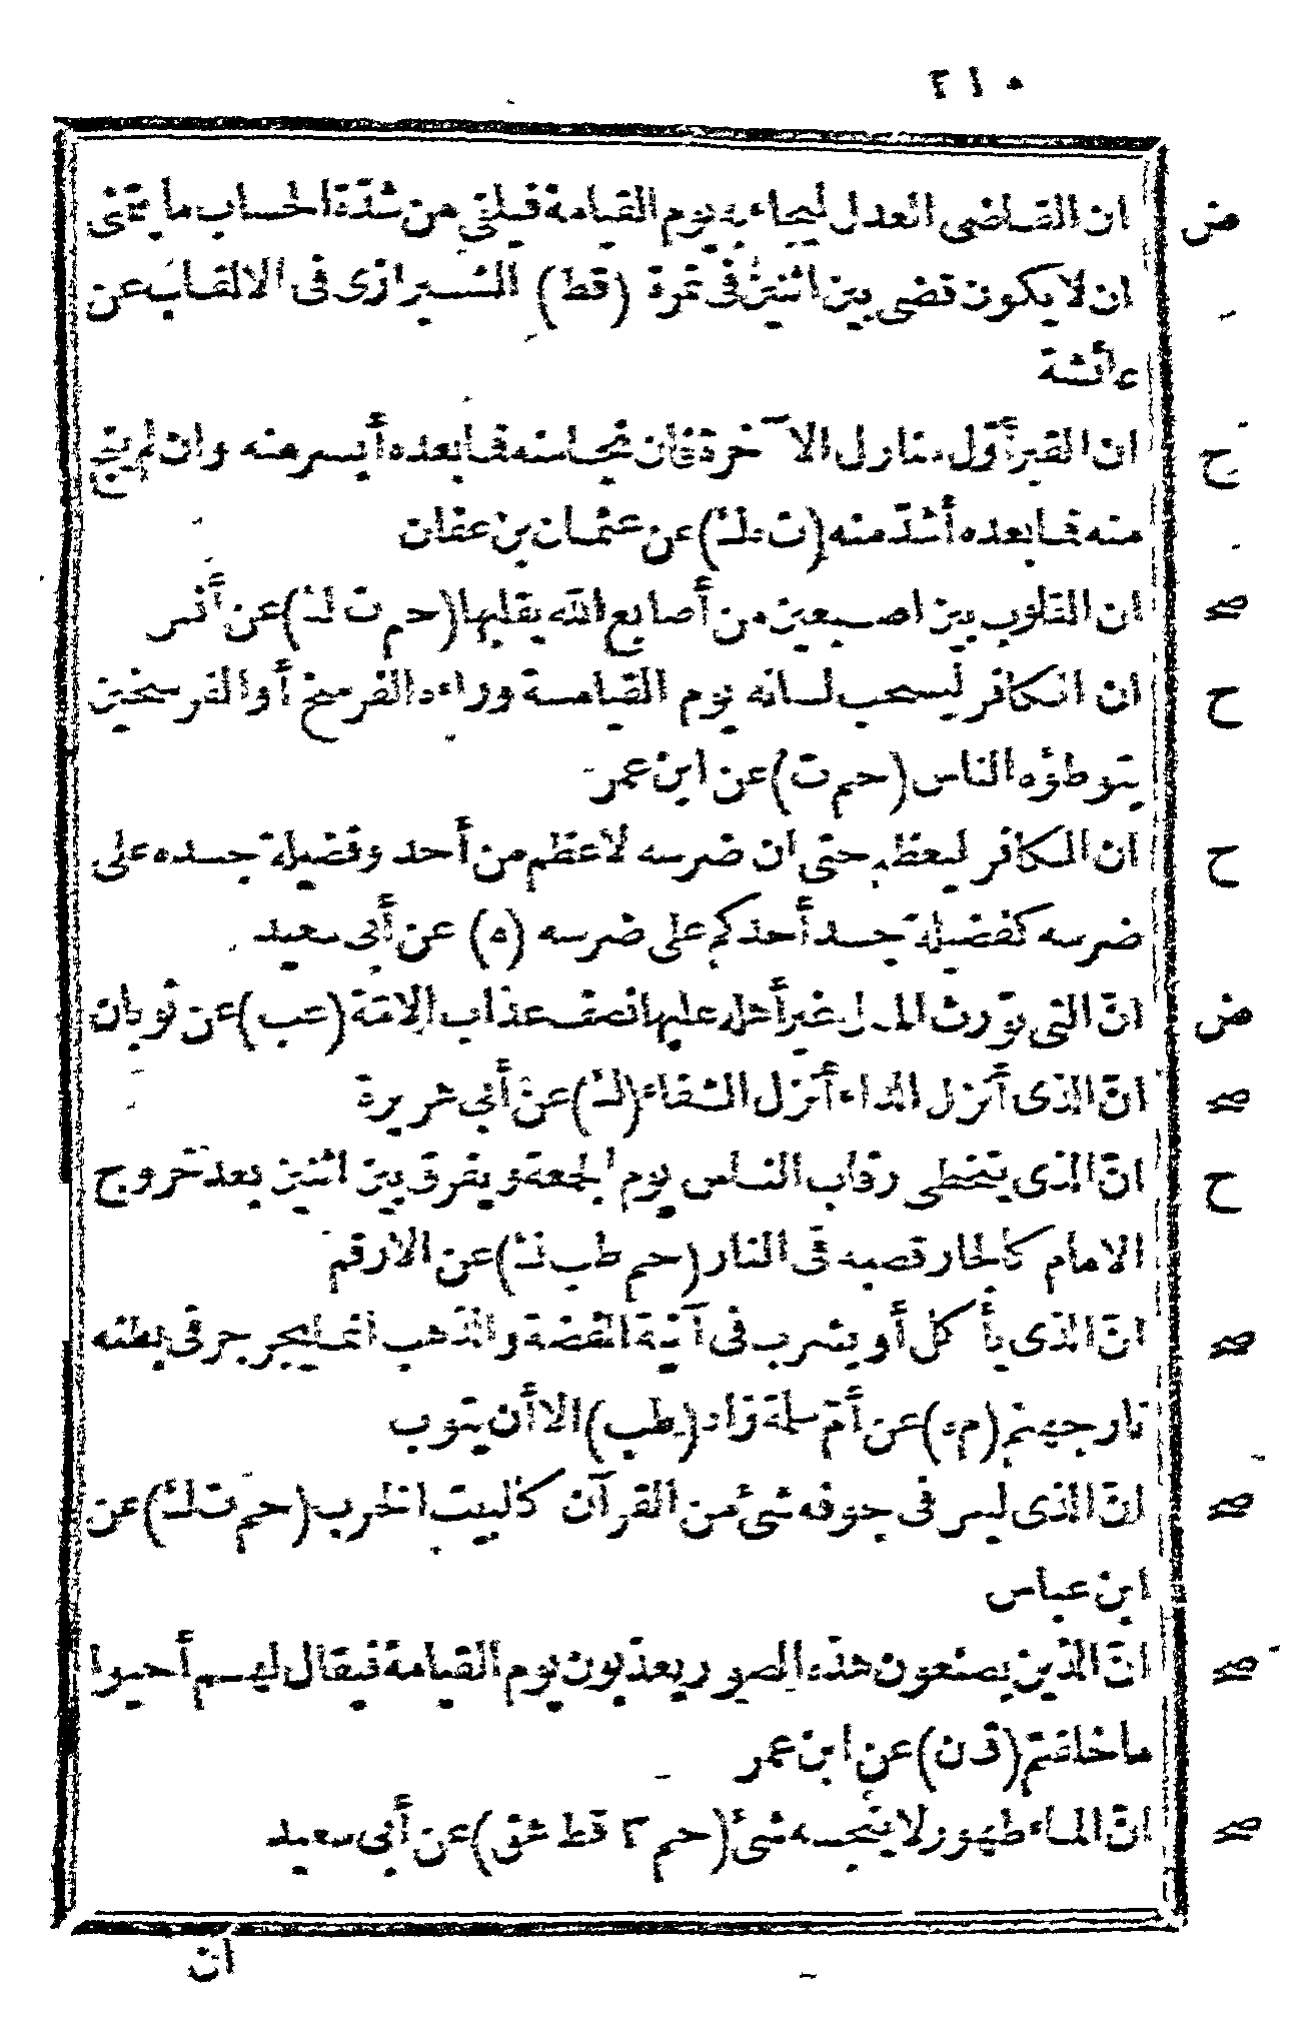 ٢١٠
ض ان القاضى العدل ليجاء به يوم القيامة فيلقى من شدّة الحساب ما يتمنى
ان لا يكون قضى بين اثنين فى تمرة (قط) الشيرازى فى الالقاب عن
عائشة
ح ان القبر أوّل منازل الآخرة فان نجا منه فما بعده أيسر منه وان لم ينج
منه فما بعده أشدّ منه (ت ه ك) عن عثمان بن عفان
صح ان القلوب بين اصبعين من أصابع الله يقلبها (حم ت ك) عن أنس
ح ان الكافر ليسحب لسانه يوم القيامة وراءه الفرسخ أو الفرسخين
يتوطؤه الناس (حم ت) عن ابن عمر
ح ان الكافر ليعظم حتى ان ضرسه لاعظم من أحد وفضيلة جسده على
ضرسه كفضيلة جسد أحدكم على ضرسه (ه) عن أبى سعيد
ض انّ التى تورّث المال غير أهله عليها نصف عذاب الامّة (عب) عن ثوبان
صح انّ الذى أنزل الداء أنزل الشفاء (ك) عن أبى هريرة
ح انّ الذى يتخطى رقاب الناس يوم الجمعة ويفرق بين اثنين بعد خروج
الامام كالجار قصبه فى النار (حم طب ك) عن الارقم
صح انّ الذى يأكل أو يشرب فى آنية الفضة والذهب انما يجرجر فى بطنه
نار جهنم (م ه) عن أمّ سلمة زاد (طب) الا أن يتوب
صح انّ الذى ليس فى جوفه شئ من القرآن كالبيت الخرب (حم ت ك) عن
ابن عباس
صح انّ الذين يصنعون هذه الصور يعذبون يوم القيامة فيقال لهم أحيوا
ما خلقتم (ق ن) عن ابن عمر
صح انّ الماء طهور لا ينجسه شئ (حم ٣ قط هق) عن أبى سعيد
ان